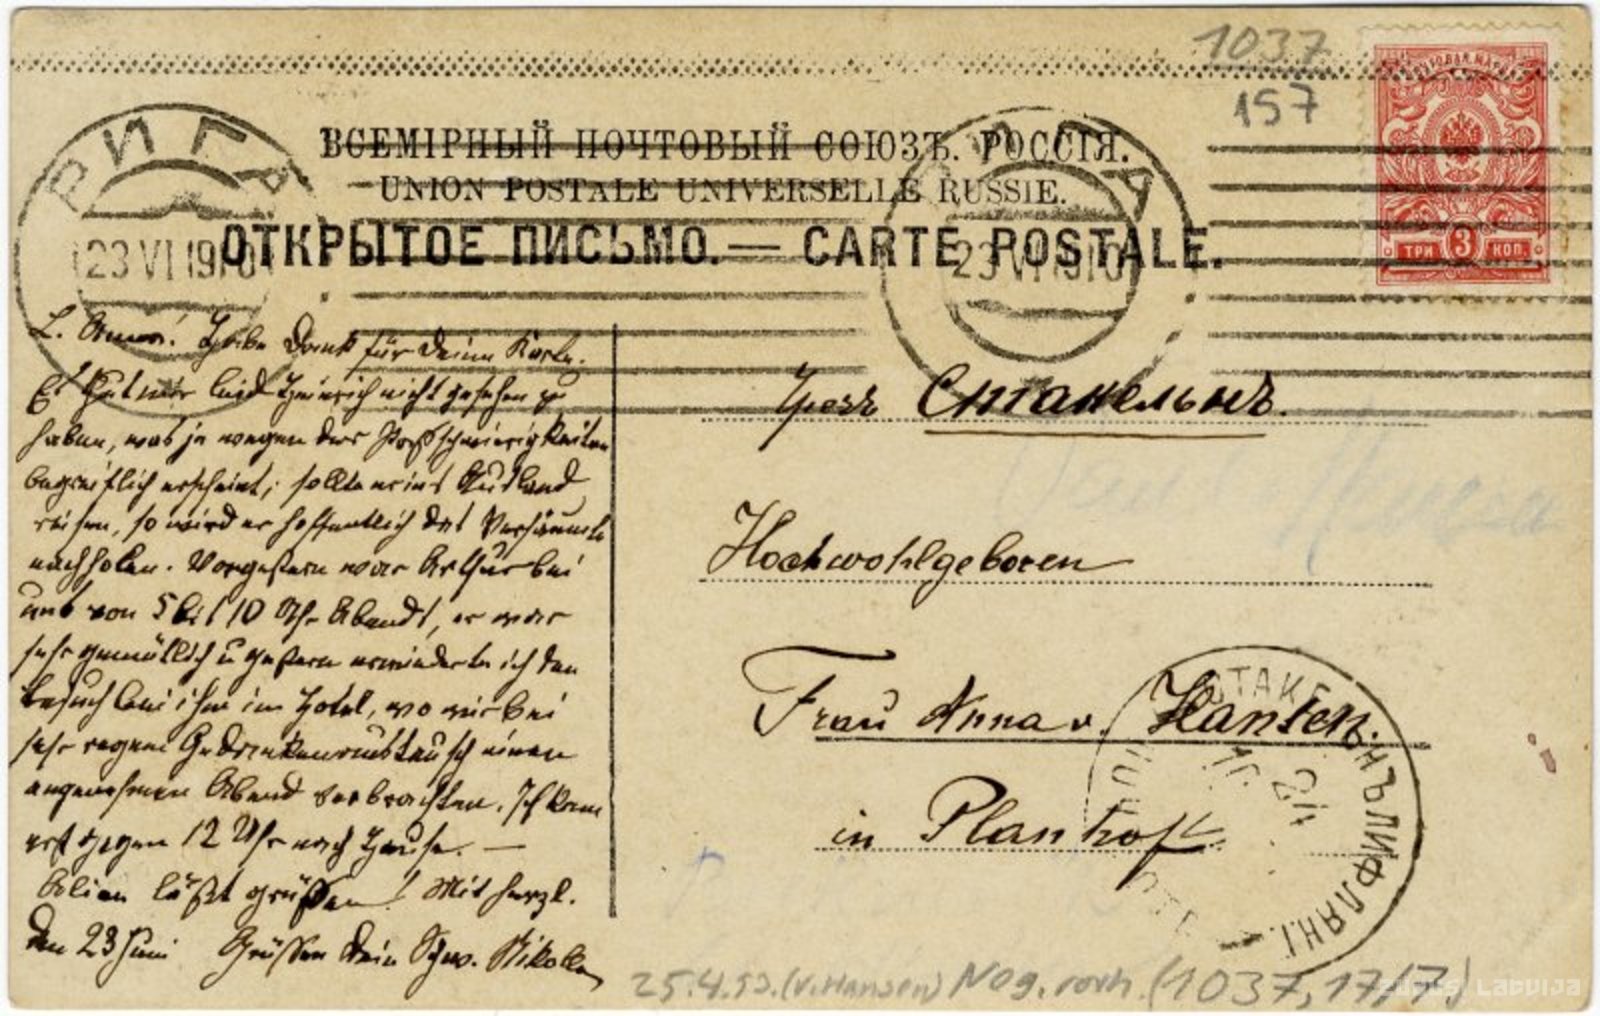 1037
157
ПОЧТОВАЯ МАРКА
РИГА
ВСЕМІРНЫЙ ПОЧТОВЫЙ СОЮЗЪ. РОССІЯ.
UNION POSTALE UNIVERSELLE RUSSIE.
ОТКРЫТОЕ ПИСЬМО. — CARTE POSTALE.
23 VI 1910
23 VI 1910
ТРИ 3 КОП.
L. Anna! Habe Dank für Deine Karte.
Es thut mir leid Heinrich nicht gesehen zu
haben, was ja wegen der Paßschwierigkeiten
begreiflich erscheint; sollte er ins Ausland
reisen, so wird er hoffentlich das Versäumte
nachholen. Vorgestern war Arthur bei
uns von 5 bis 10 Uhr Abends, er war
sehr gemütlich u gestern erwiderte ich den
Besuch bei ihm im Hotel, wo wir bei
sehr regem Gedankenaustausch einen
angenehmen Abend verbrachten. Ich kam
erst gegen 12 Uhr nach Hause. —
läßt grüßen! Mit herzl.
den 23 Juni Grüßen Dein Schw. Nikolai
Чрезъ Стакельнъ.
Hochwohlgeboren
Frau Anna v. Hansen.
in Planhof
СТАКЕЛЬНЪ ЛИФЛЯН.
25.4.53. (v. Hansen) Nog. rovh. (1037, 17/7.)
zudusi Latvija